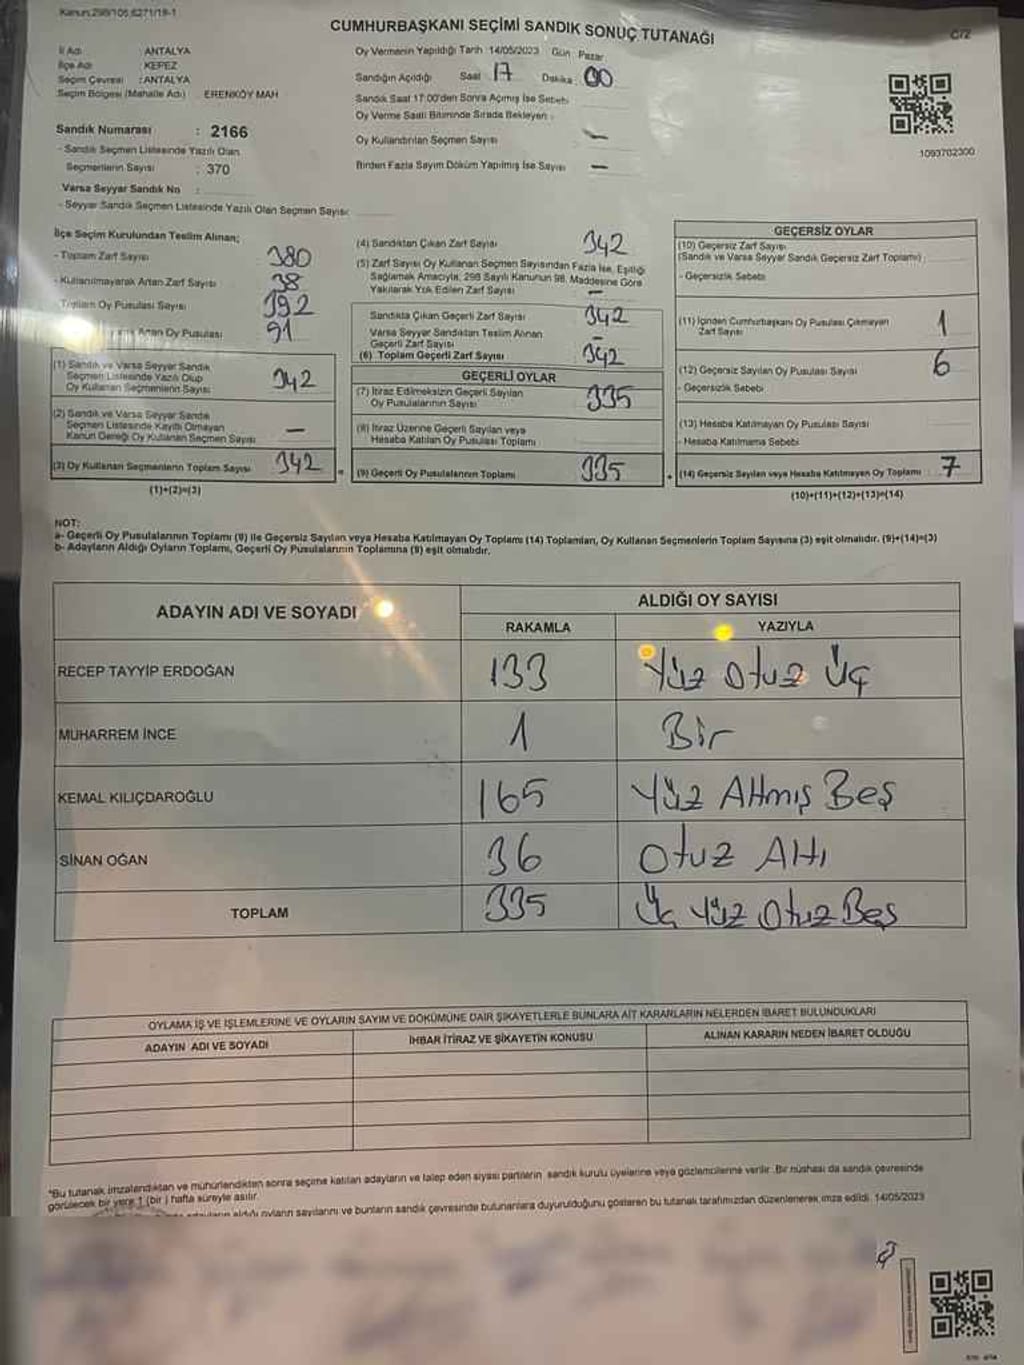 Kanun:298/105,6271/19-1
CUMHURBAŞKANI SEÇİMİ SANDIK SONUÇ TUTANAĞI
C/2
İl Adı : ANTALYA
İlçe Adı : KEPEZ
Seçim Çevresi : ANTALYA
Seçim Bölgesi (Mahalle Adı) : ERENKÖY MAH
Sandık Numarası : 2166
- Sandık Seçmen Listesinde Yazılı Olan
Seçmenlerin Sayısı : 370
Varsa Seyyar Sandık No :
- Seyyar Sandık Seçmen Listesinde Yazılı Olan Seçmen Sayısı:
Oy Vermenin Yapıldığı Tarih :14/05/2023 Gün : Pazar
Sandığın Açıldığı Saat 17 Dakika : 00
Sandık Saat 17:00'den Sonra Açımış İse Sebebi
Oy Verme Saati Bitiminde Sırada Bekleyen
Oy Kullandırılan Seçmen Sayısı —
Birden Fazla Sayım Döküm Yapılmış İse Sayısı —
1093702300
İlçe Seçim Kurulundan Teslim Alınan;
- Toplam Zarf Sayısı 380
- Kullanılmayarak Artan Zarf Sayısı 38
- Toplam Oy Pusulası Sayısı 392
Artan Oy Pusulası 91
(1) Sandık ve Varsa Seyyar Sandık
Seçmen Listesinde Yazılı Olup
Oy Kullanan Seçmenlerin Sayısı 342
(2) Sandık ve Varsa Seyyar Sandık
Seçmen Listesinde Kayıtlı Olmayan
Kanun Gereği Oy Kullanan Seçmen Sayısı —
(3) Oy Kullanan Seçmenlerin Toplam Sayısı 342
(1)+(2)=(3)
(4) Sandıktan Çıkan Zarf Sayısı 342
(5) Zarf Sayısı Oy Kullanan Seçmen Sayısından Fazla İse, Eşitliği
Sağlamak Amacıyla, 298 Sayılı Kanunun 98. Maddesine Göre
Yakılarak Yok Edilen Zarf Sayısı —
Sandıkta Çıkan Geçerli Zarf Sayısı 342
Varsa Seyyar Sandıktan Teslim Alınan
Geçerli Zarf Sayısı —
(6) Toplam Geçerli Zarf Sayısı 342
GEÇERLİ OYLAR
(7) İtiraz Edilmeksizin Geçerli Sayılan
Oy Pusulalarının Sayısı 335
(8) İtiraz Üzerine Geçerli Sayılan veya
Hesaba Katılan Oy Pusulası Toplamı
(9) Geçerli Oy Pusulalarının Toplamı 335
GEÇERSİZ OYLAR
(10) Geçersiz Zarf Sayısı
(Sandık ve Varsa Seyyar Sandık Geçersiz Zarf Toplamı)
- Geçersizlik Sebebi
(11) İçinden Cumhurbaşkanı Oy Pusulası Çıkmayan
Zarf Sayısı 1
(12) Geçersiz Sayılan Oy Pusulası Sayısı 6
- Geçersizlik Sebebi
(13) Hesaba Katılmayan Oy Pusulası Sayısı
- Hesaba Katılmama Sebebi
(14) Geçersiz Sayılan veya Hesaba Katılmayan Oy Toplamı 7
(10)+(11)+(12)+(13)=(14)
NOT:
a- Geçerli Oy Pusulalarının Toplamı (9) ile Geçersiz Sayılan veya Hesaba Katılmayan Oy Toplamı (14) Toplamları, Oy Kullanan Seçmenlerin Toplam Sayısına (3) eşit olmalıdır. (9)+(14)=(3)
b- Adayların Aldığı Oyların Toplamı, Geçerli Oy Pusulalarının Toplamına (9) eşit olmalıdır.
ADAYIN ADI VE SOYADI
ALDIĞI OY SAYISI
RAKAMLA YAZIYLA
RECEP TAYYİP ERDOĞAN 133 Yüz Otuz Üç
MUHARREM İNCE 1 Bir
KEMAL KILIÇDAROĞLU 165 Yüz Altmış Beş
SİNAN OĞAN 36 Otuz Altı
TOPLAM 335 Üç Yüz Otuz Beş
OYLAMA İŞ VE İŞLEMLERİNE VE OYLARIN SAYIM VE DÖKÜMÜNE DAİR ŞİKAYETLERLE BUNLARA AİT KARARLARIN NELERDEN İBARET BULUNDUKLARI
ADAYIN ADI VE SOYADI İHBAR İTİRAZ VE ŞİKAYETİN KONUSU ALINAN KARARIN NEDEN İBARET OLDUĞU
*Bu tutanak imzalandıktan ve mühürlendikten sonra seçime katılan adayların ve talep eden siyasi partilerin sandık kurulu üyelerine veya gözlemcilerine verilir. Bir nüshası da sandık çevresinde
görülecek bir yere 1 (bir) hafta süreyle asılır.
adayların aldığı oyların sayılarını ve bunların sandık çevresinde bulunanlara duyurulduğunu gösteren bu tutanak tarafımızdan düzenlenerek imza edildi. 14/05/2023